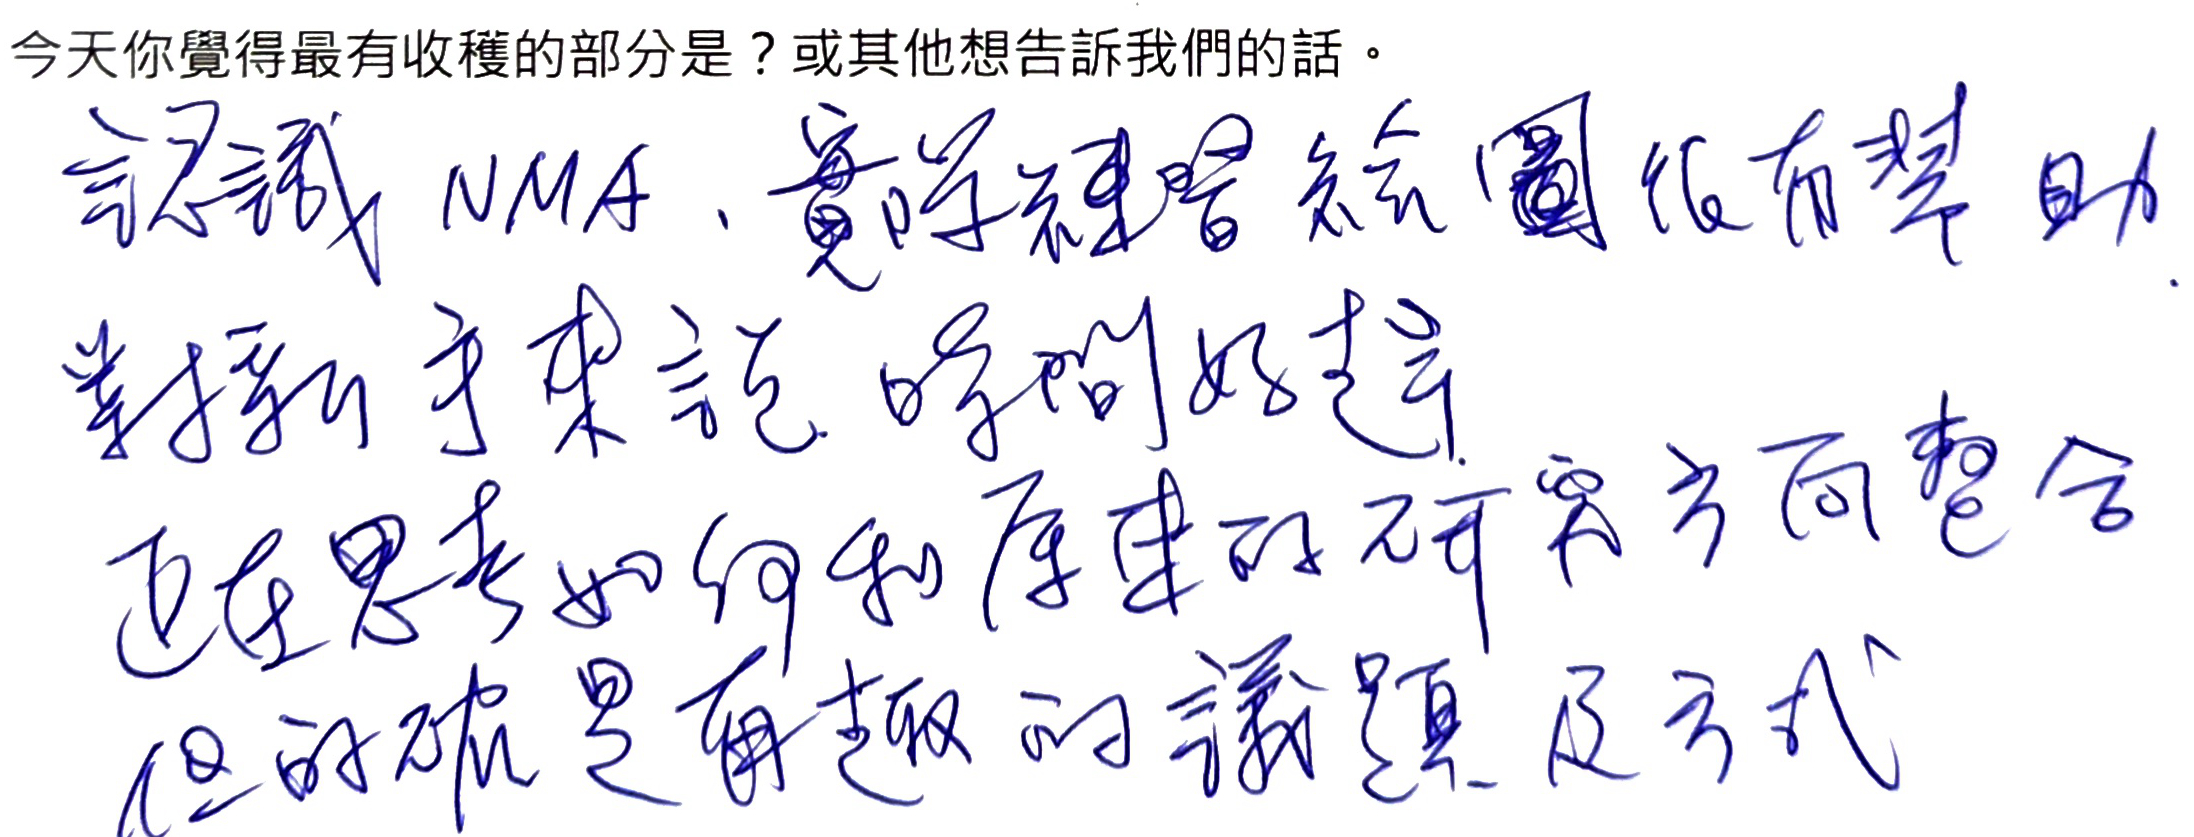 今天你覺得最有收穫的部分是？或其他想告訴我們的話。
認識 NMA、實際練習繪圖很有幫助.
對新手來說 時間好趕.
正在思考如何和原來的研究方向整合
但的確是有趣的議題及方式